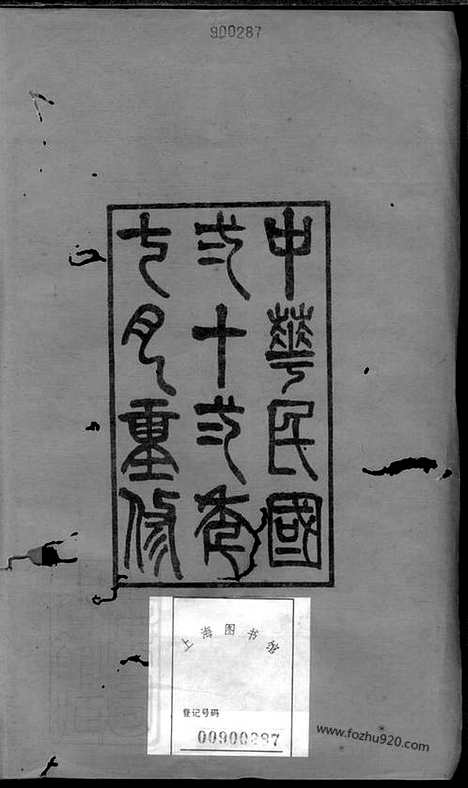 900287
中華民國
弍十弍年
七月重修
上海图书馆
登记号码
00900287
www.fozhu920.com